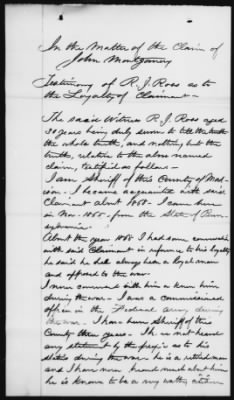 In the Matter of the Claim of
John Montgomery
Testimony of R. J. Ross as to
the Loyalty of Claimant -
The said Witness R. J. Ross aged
30 years being duly sworn to tell the truth
the whole truth, and nothing but the
truth, relative to the above named
claim, testified as follows -
I am Sheriff of this County of Mad-
ison - I became acquainted with said
Claimant about 1868 - I came here
in Nov. 1865 - from the State of Penn-
sylvania -
About the year 1868 I had some conversation
with said Claimant in reference to his loyalty
he said he had always been a loyal man
and opposed to the war -
I never conversed with him or knew him
during the war - I was a commissioned
officer in the Federal army during
the war - I have been Sheriff of this
County three years - I have not heard
any statement by the people as to his
status during the war - he is a retired man
and I have never heard much about him
he is known to be a very wealthy citizen